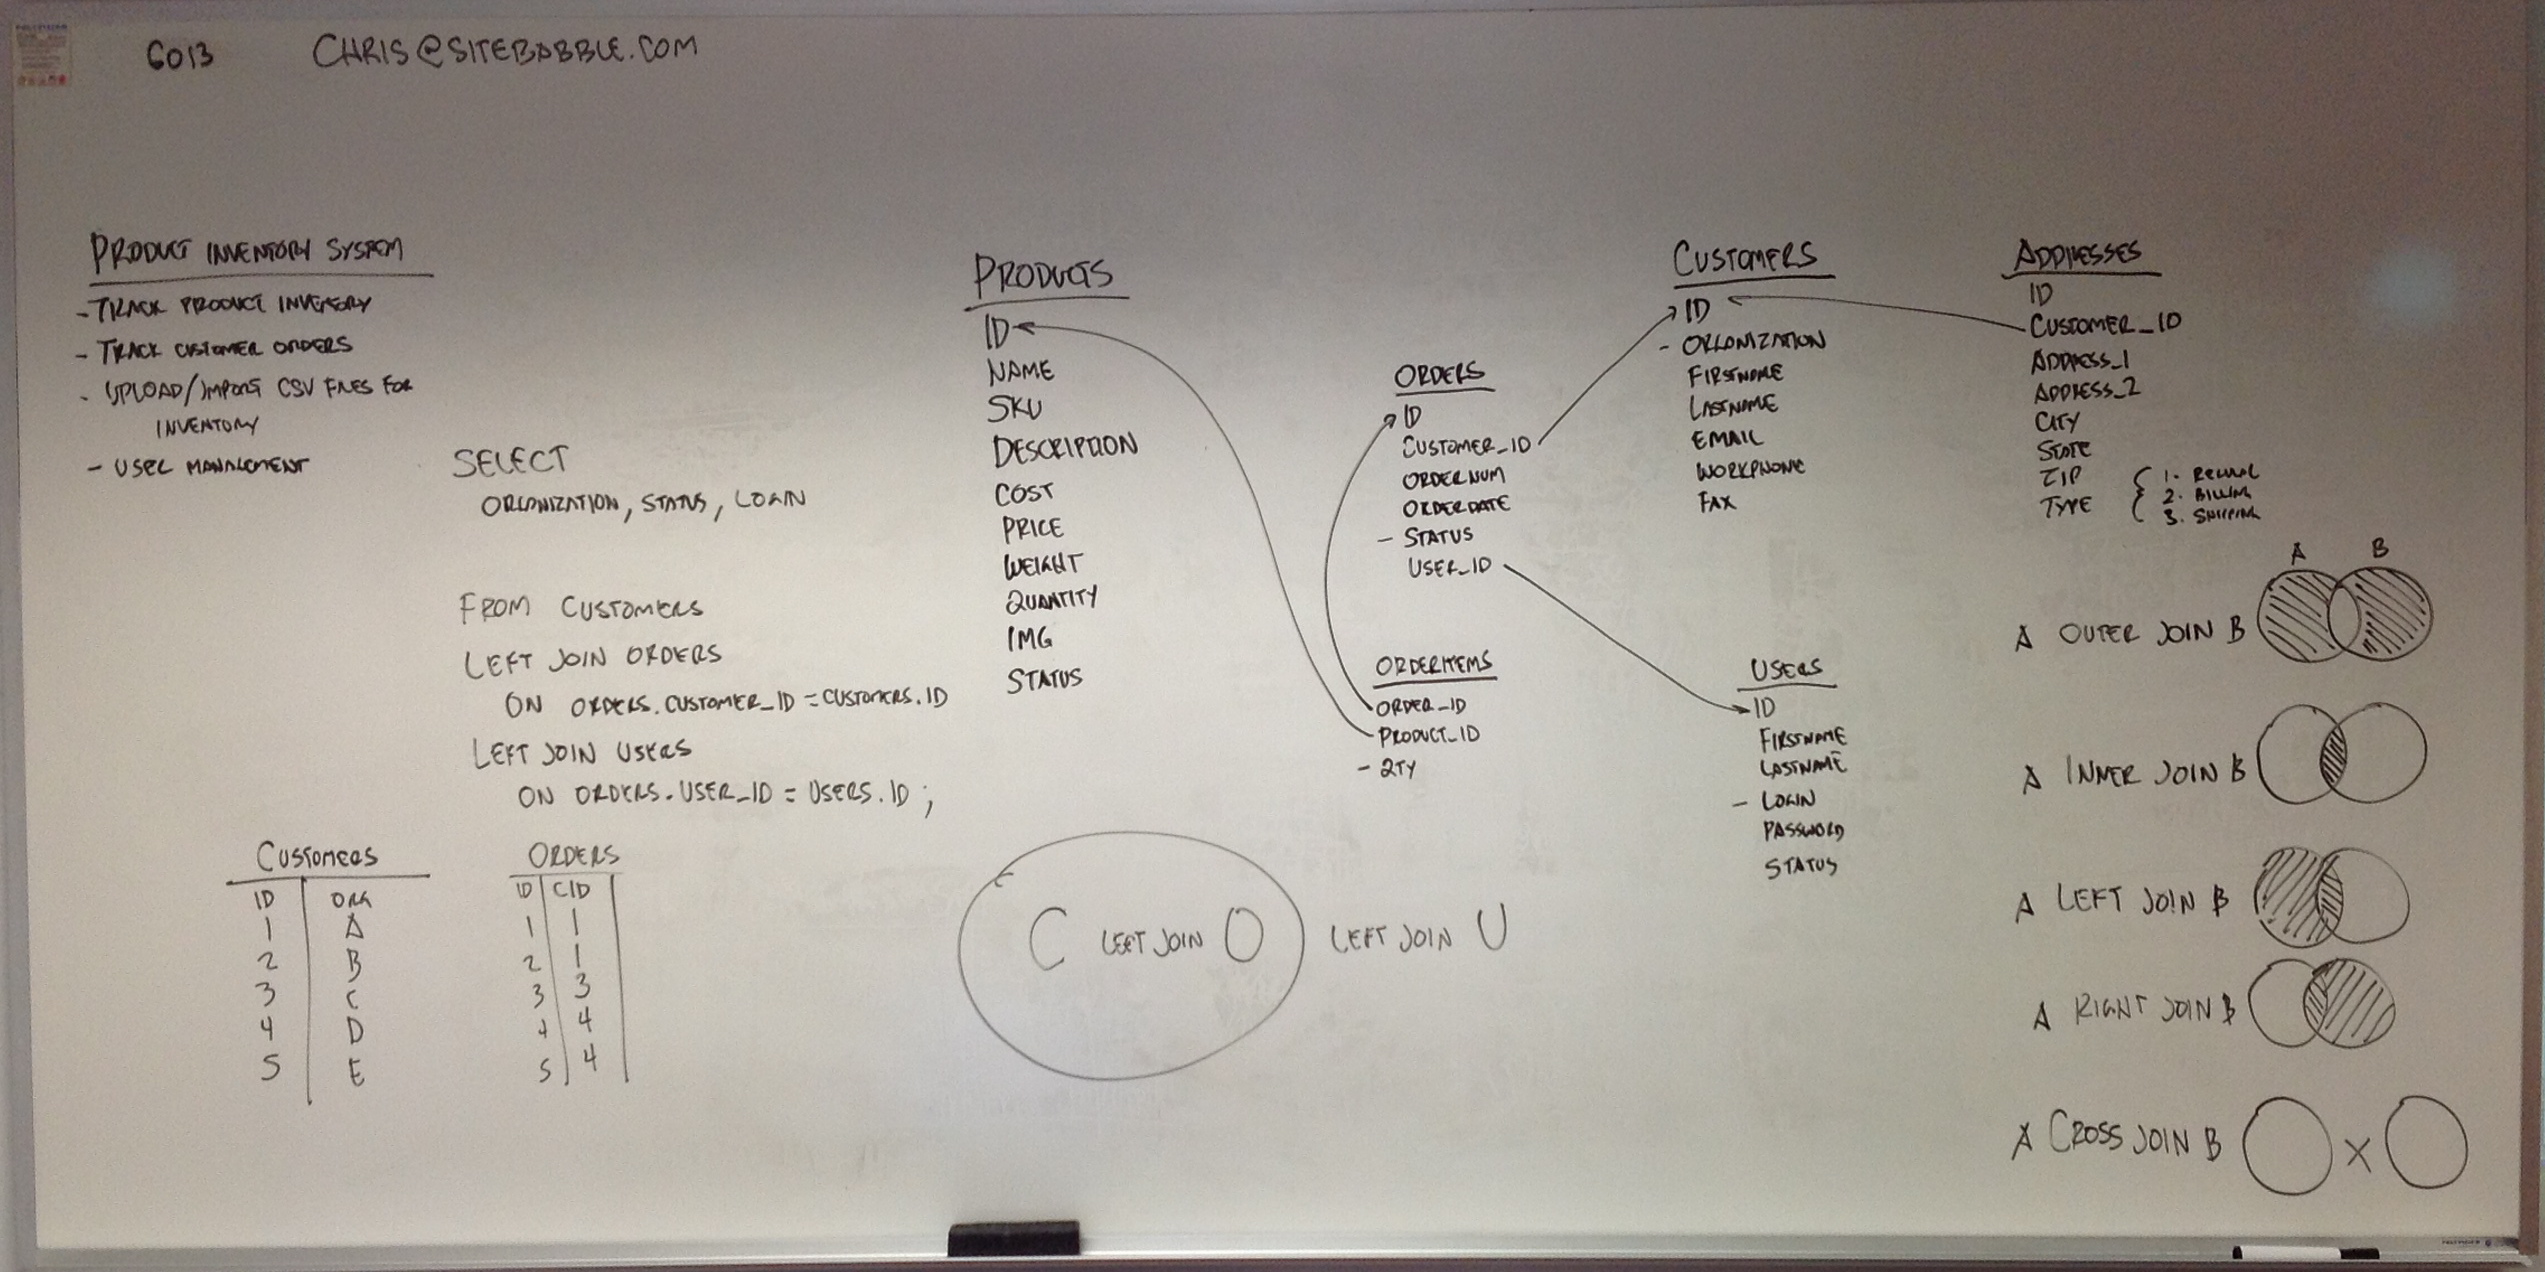 6013
CHRIS@SITEBABBLE.COM
PRODUCT INVENTORY SYSTEM
- TRACK PRODUCT INVENTORY
- TRACK CUSTOMER ORDERS
- UPLOAD/IMPORT CSV FILES FOR
INVENTORY
- USER MANAGEMENT
SELECT
ORGANIZATION, STATUS, LOGIN
FROM CUSTOMERS
LEFT JOIN ORDERS
ON ORDERS.CUSTOMER_ID = CUSTOMERS.ID
LEFT JOIN USERS
ON ORDERS.USER_ID = USERS.ID;
CUSTOMERS
ID ORG
1 A
2 B
3 C
4 D
5 E
ORDERS
ID CID
1 1
2 1
3 3
4 4
5 4
PRODUCTS
ID
NAME
SKU
DESCRIPTION
COST
PRICE
WEIGHT
QUANTITY
IMG
STATUS
ORDERS
ID
CUSTOMER_ID
ORDERNUM
ORDERDATE
- STATUS
USER_ID
ORDERITEMS
ORDER_ID
PRODUCT_ID
- QTY
C LEFT JOIN O LEFT JOIN U
CUSTOMERS
ID
- ORGANIZATION
FIRSTNAME
LASTNAME
EMAIL
WORKPHONE
FAX
USERS
ID
FIRSTNAME
LASTNAME
- LOGIN
PASSWORD
STATUS
ADDRESSES
ID
CUSTOMER_ID
ADDRESS_1
ADDRESS_2
CITY
STATE
ZIP
TYPE
1.
2. BILLING
3. SHIPPING
A B
A OUTER JOIN B
A INNER JOIN B
A LEFT JOIN B
A RIGHT JOIN B
A CROSS JOIN B X